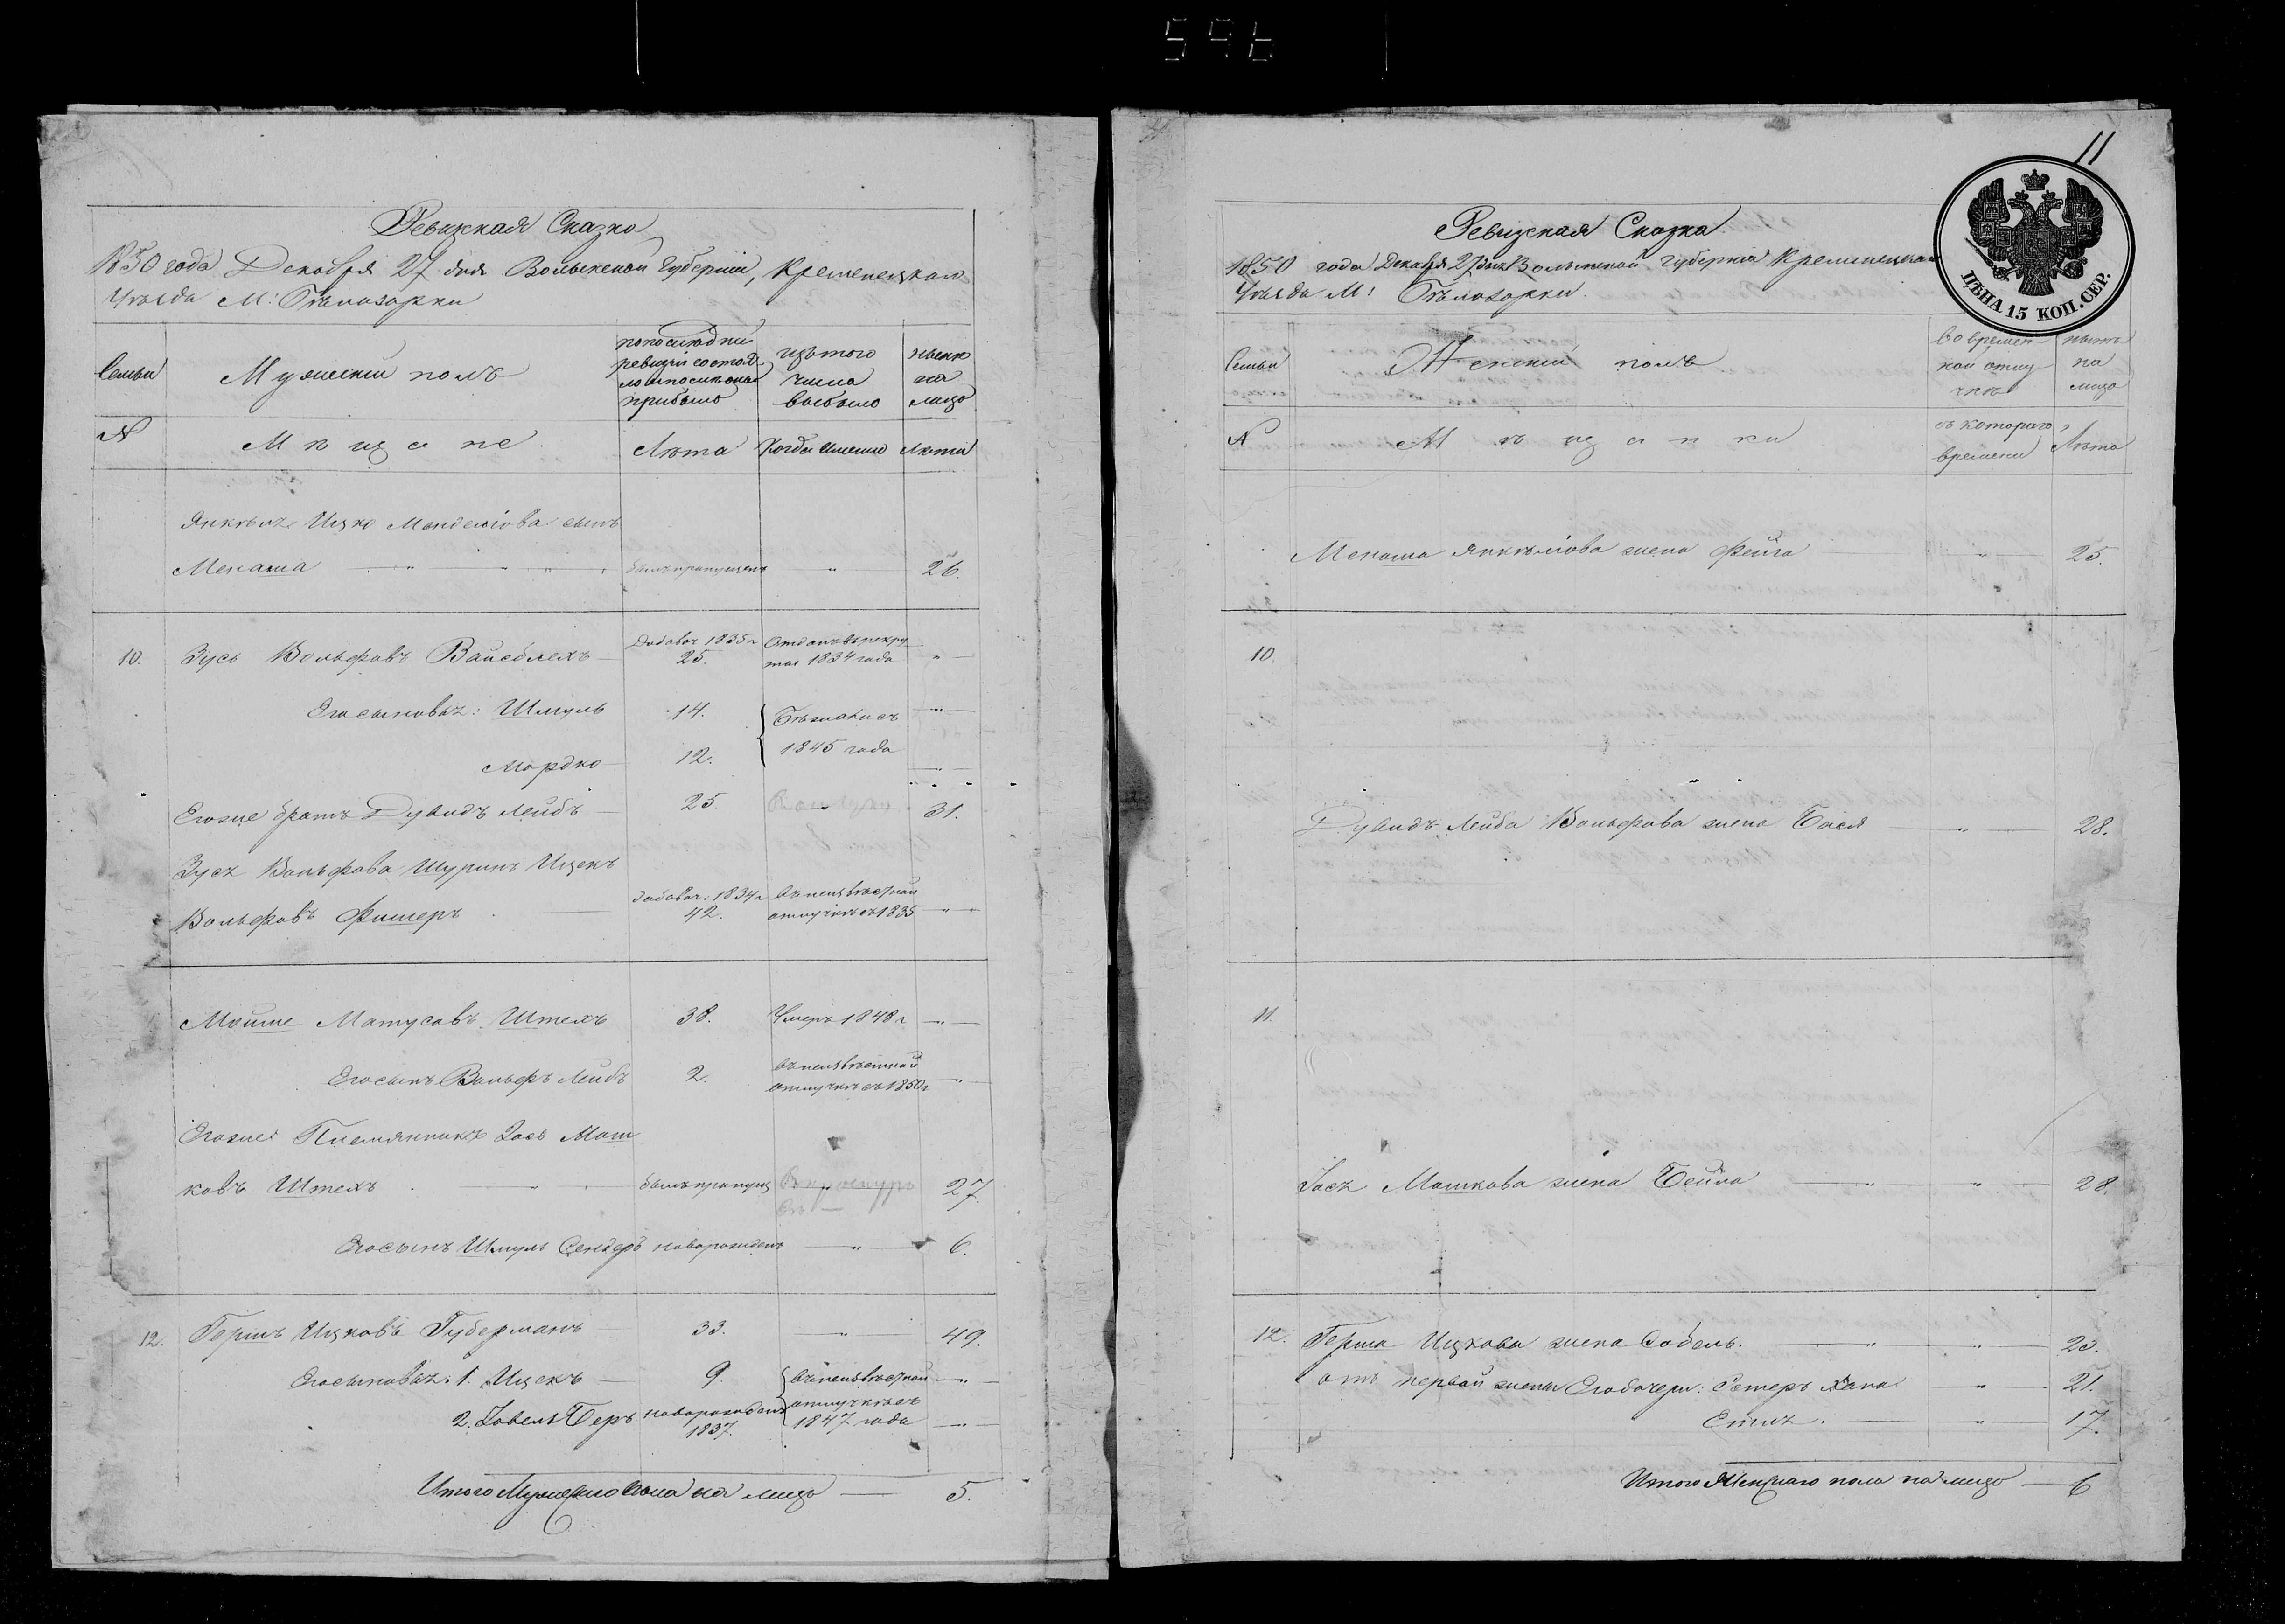 596
Ревизская Сказка
1850 года Декабря 27 дня Волынской Губернiи, Кременецкаго
Уѣзда М: Бѣлозорки
Семьи
Мужескiй полъ
по последней
ревизiи состоя
ло и после оной
прибыло
изъ того
числа
выбыло
нынѣ
на
лицо
№
Мѣщане
Лѣта
Когда именно
Лѣта
Янкель Ицко Менделiова сынъ
Менаша
былъ пропущенъ
"
26.
10.
Зусь Вольфовъ Вайсблехъ
Добавоч 1835 г
25.
Отданъ въ рекру
ты 1834 года
"
Его сыновья: Шмуль
14.
Бѣжались
1845 года
"
Мордко
12.
"
Его же братъ Дувидъ Лейбъ
25
31.
Зуся Вольфова Шуринъ Ицекъ
Вольфовъ Фишеръ
добавоч: 1834 г
42.
въ неизвѣстной
отлучкѣ съ 1835
"
Мойше Матусовъ Штехъ
38.
Умеръ 1848 г
"
Его сынъ Вольфъ Лейбъ
2.
въ неизвѣстной
отлучкѣ съ 1850 г
"
Его же Племянникъ Iось Мош
ковъ Штехъ
былъ пропущ
27.
Его сынъ Шмуль Сендеръ
новорожденъ
"
6.
12.
Гершъ Ицковъ Губерманъ
33.
"
49.
Его сыновья: 1. Ицекъ
9.
въ неизвѣстной
отлучкѣ съ
1847 года
"
2. Iовель Беръ
новорожденъ
1837.
"
Итого Мужескаго пола на лицо
5.
11
ЦѢНА 15 КОП. СЕР.
Ревизская Сказка
1850 года Декабря 27 дня Волынской Губернiи Кременецкаго
Уѣзда М: Бѣлозорки.
Семьи
Женскiй полъ
во времен
ной отлу
чкѣ
нынѣ
на
лицо
№
Мѣщанки
съ котораго
времени
Лѣта
Менаша Янкелiова жена Фейга
"
25.
10.
Дувидъ Лейба Вольфова жена Бася
"
28.
11.
Iося Мошкова жена Бейла
"
28.
12.
Герша Ицкова жена Собель.
"
23.
отъ первой жены Его дочери: Эстеръ Хана
"
21.
Етля.
"
17.
Итого Женскаго пола на лицо
6